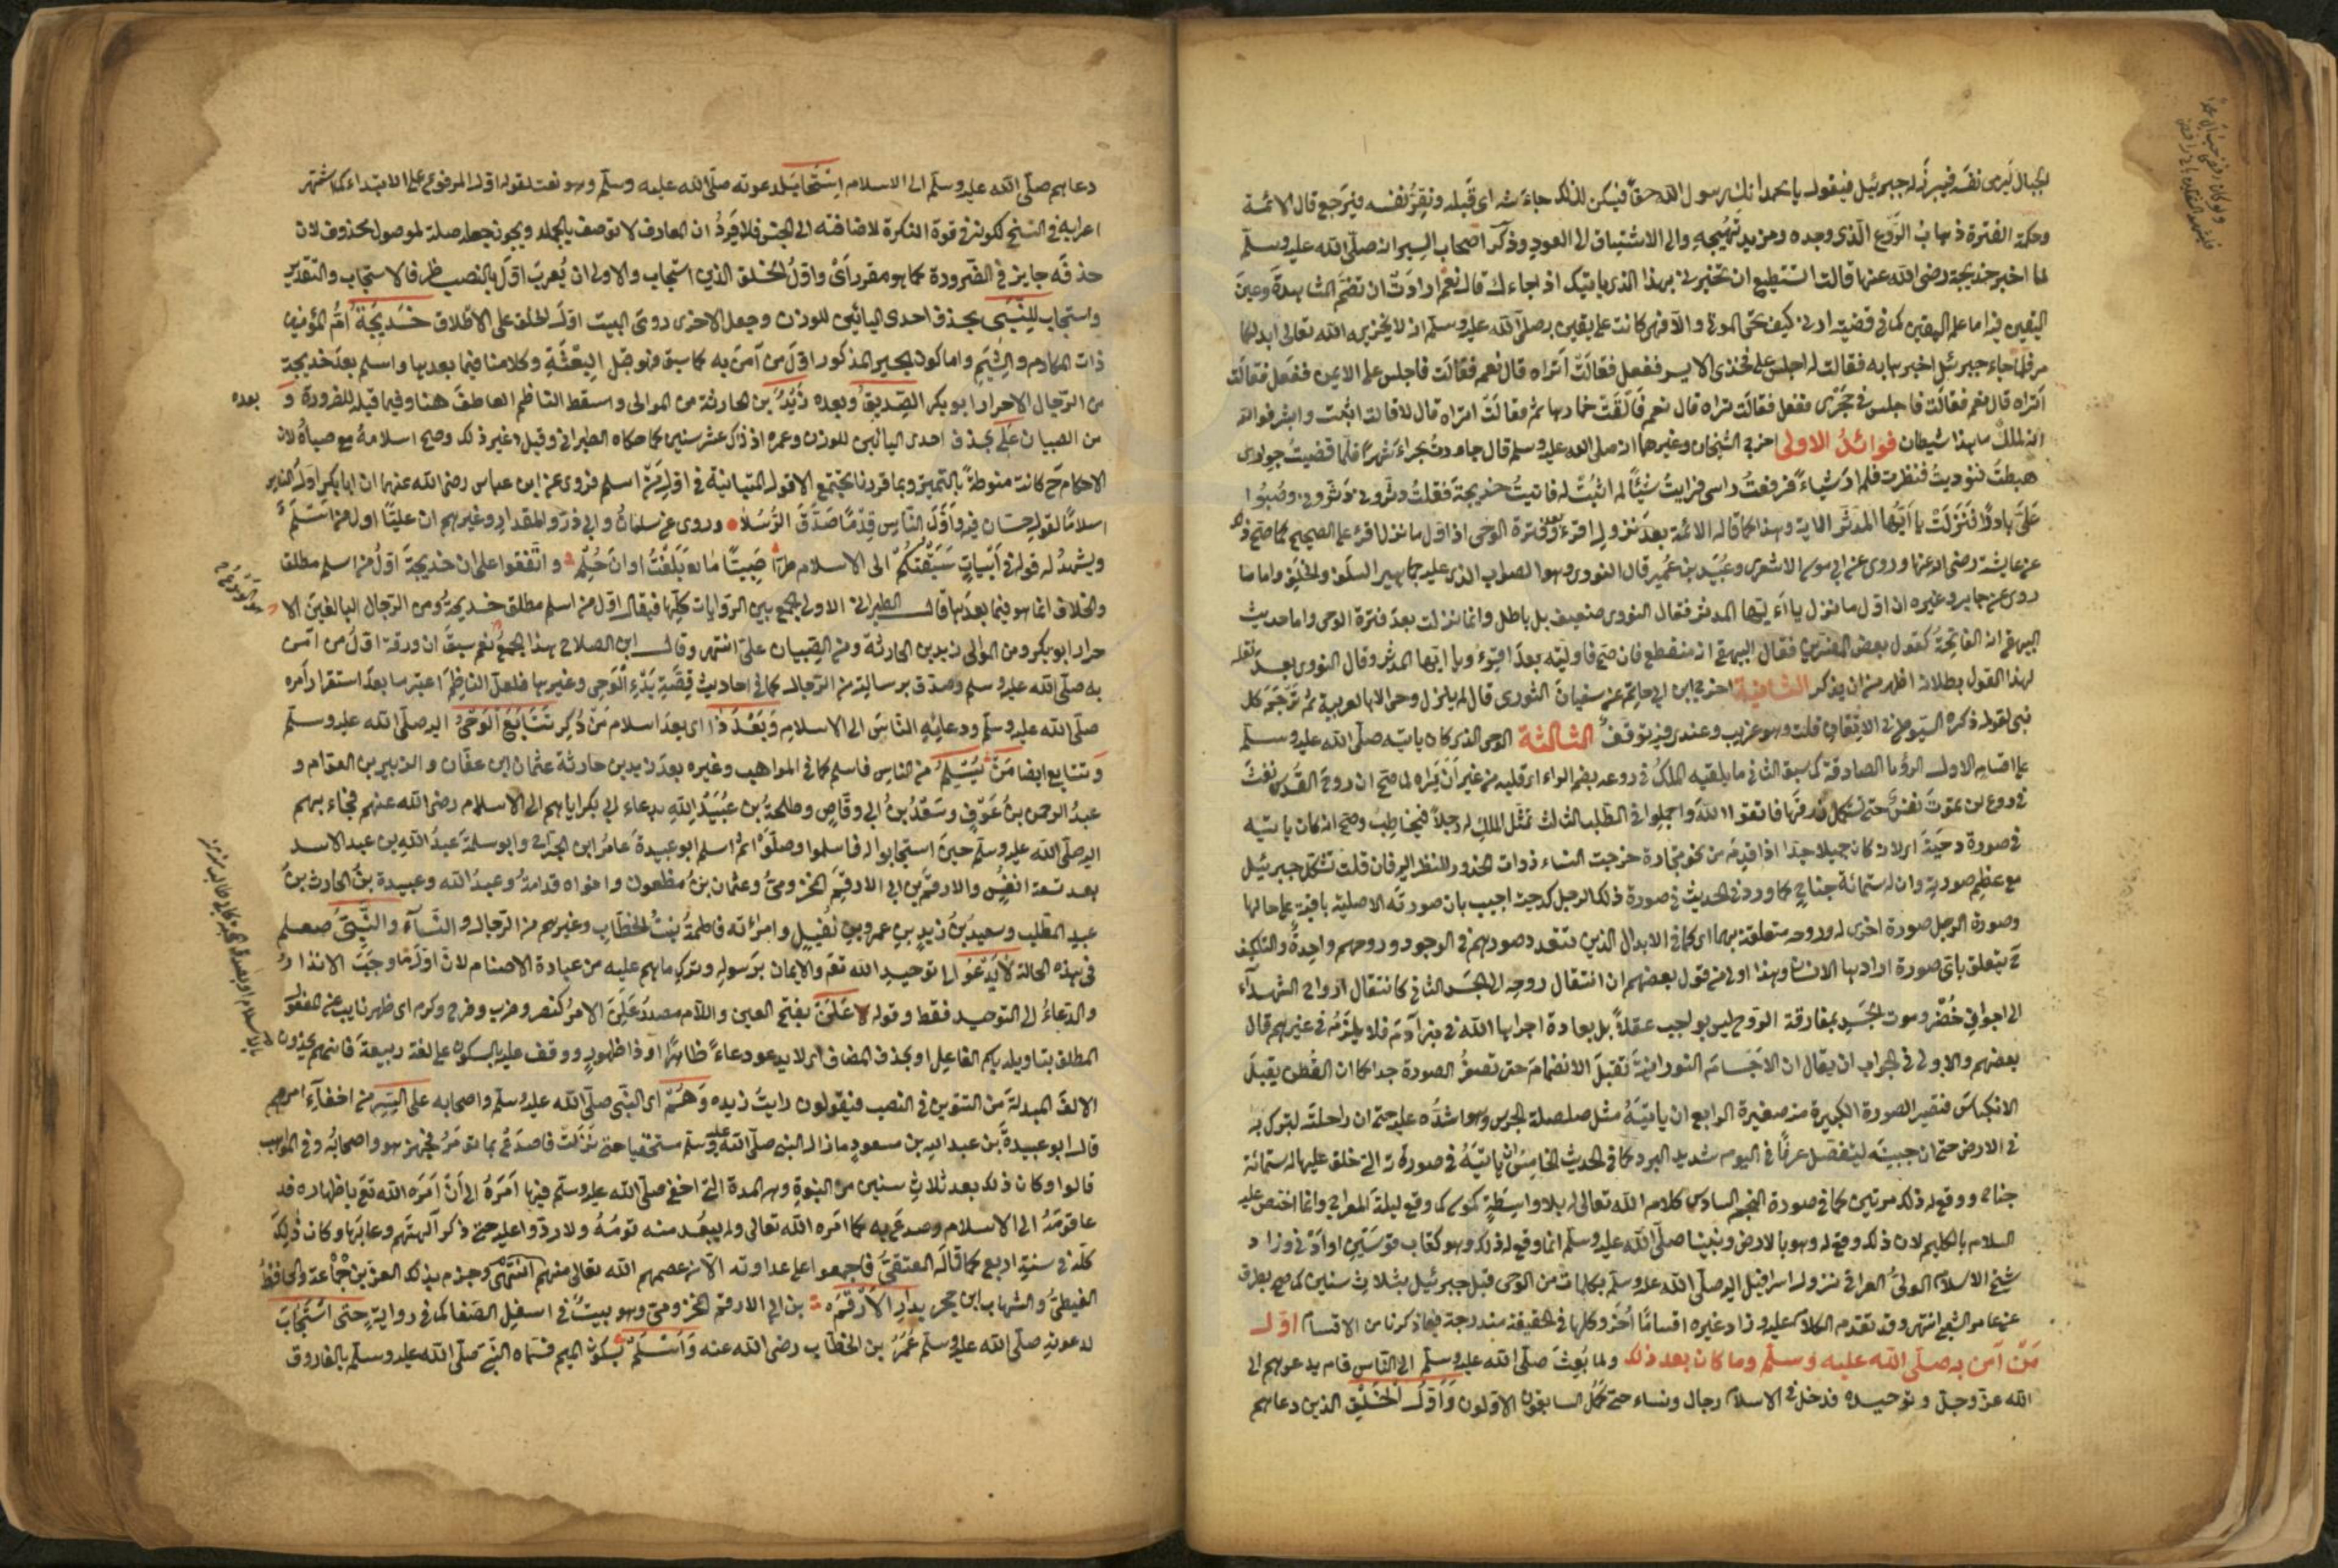 لجبال ليرمى نفسه فيبرز له جبرئيل فيقول يا محمد انك رسول الله حقا فيسكن لذلك جاءشه اى قبله وتقر نفسه فيرجع قال الائمة
وحكمة الفترة ذهاب الروع الذى وجده ومزيد تهييجه والى الاشتياق الى العود وذكر اصحاب السير انه صلى الله عليه وسلم
لما اخبر خديجة رضى الله عنها قالت اتستطيع ان تخبرنى بهذا الذى ياتيك اذا جاءك قال نعم ارادت ان تضم المشاهدة وعين
اليقين فى اما علم اليقين كما فى قضية ارنى كيف تحى الموتى والا فهى كانت على يقين بصلى الله عليه وسلم انه لا يخزيه الله تعالى ابدا كما
مر فلما جاء جبرئيل اخبرها به فقالت له اجلس على فخذى الايسر ففعل فقالت اتراه قال نعم فقالت فاجلس على الايمن ففعل فقالت
اتراه قال نعم فقالت فاجلس فى حجرى ففعل فقالت تراه قال نعم فالقت خمارها ثم فقالت اتراه قال لا قالت اثبت وابشر فوالله
انه لملك ما هذا شيطان فوائد الاولى اخرج الشيخان وغيرهما انه صلى الله عليه وسلم قال جاورت بحراء شهرا فلما قضيت جوارى
هبطت فنوديت فنظرت فلم ار شياء فرفعت راسى فرايت شيئا لم اثبت له فاتيت خديجة فقلت دثرونى دثرونى وصبوا
على باردا فنزلت يا ايها المدثر الاية وهذا كما قاله الائمة بعد نزول اقرء وبعد فترة الوحى اذ اول ما نزل اقرء على الصحيح كما صح ذلك
عن عايشة رضى الله عنها وروى عن ابى موسى الاشعرى وعبيد بن عمير قال النووى وهو الصواب الذى عليه جماهير السلف والخلف واما ما
روى عن جابر وغيره ان اول ما نزل يا اءيها المدثر فقال النووى ضعيف بل باطل وانما نزلت بعد فترة الوحى واما حديث
البيهقى انه الفاتحة كقول بعض المفسرين فقال البيهقى انه منقطع فان صح فاوليته بعد اقرء ويا ايها المدثر وقال النووى بعد نقله
لهذا القول بطلانه اظهر من ان يذكر الثانية اخرج ابن ابى حاتم عن سفيان الثورى قال لم ينزل وحى الا بالعربية ثم ترجم كل
نبى لقومه ذكره السيوطى فى الاتقان قلت وهو غريب وعندى فيه توقف الثالثة الوحى الذى كان ياتيه صلى الله عليه وسلم
على اقسام الاول الرؤيا الصادقة كما سبق الثانى ما يلقيه الملك فى روعه بضم الراء اى قلبه من غير ان يراه لما صح ان روح القدس نفث
فى روعى لن تموت نفس حتى تستكمل رزقها فاتقوا الله واجملوا فى الطلب الثالث تمثل الملك له رجلا فيخاطبه وصح انه كان ياتيه
فى صورة دحية اى لانه كان جميلا جدا اذا قدم من نحو تجارة خرجت النساء ذوات الخدور للنظر اليه فان قلت تشكل جبرئيل
مع عظم صورته وان له ستمائة جناح كما ورد فى الحديث فى صورة ذلك الرجل كدحية اجيب بان صورته الاصلية باقية على حالها
وصورة الرجل صورة اخرى له وروحه متعلقة بهما اى كما فى الابدال الذين تتعدد صورهم فى الوجود وروحهم واحدة والتكليف
ح يتعلق باى صورة ارادها الانسان وهذا اولى من قول بعضهم ان انتقال روحه الى الجسد الثانى كانتقال ارواح الشهداء
الى اجواف خضر وموت الجسد بمفارقة الروح ليس بواجب عقلا بل بعادة اجراها الله فى بنى آدم فلا يلزم فى غيرهم قال
بعضهم والاولى فى الجواب ان يقال ان الاجسام النورانية تقبل الانضمام حتى تصغر الصورة جدا كما ان القطن يقبل
الانكباس فتصير الصورة الكبيرة منه صغيرة الرابع ان ياتيه مثل صلصلة الجرس وهو اشده عليه حتى ان راحلته لتبرك به
فى الارض حتى ان جبينه ليتفصد عرقا فى اليوم شديد البرد كما فى الحديث الخامس ان ياتيه فى صورته التى خلق عليها له ستمائة
جناح ووقع له ذلك مرتين كما فى صورة النجم السادس كلام الله تعالى له بلا واسطة كموسى كما وقع ليلة المعراج وانما اختص عليه
السلام بالكليم لان ذلك وقع له وهو بالارض ونبينا صلى الله عليه وسلم انما وقع له ذلك وهو كقاب قوسين او ادنى وزاد
شيخ الاسلام الولى العراقى نزول اسرافيل اليه صلى الله عليه وسلم بكلمات من الوحى قبل جبرئيل بثلاث سنين كما صح بطرق
عن عامر الشعبى انتهى وقد تقدم الكلام عليه وزاد غيره اقساما اخر وكلها فى الحقيقة مندرجة فيما ذكرنا من الاقسام اول
من آمن به صلى الله عليه وسلم وما كان بعد ذلك ولما بعث صلى الله عليه وسلم الى الناس قام يدعوهم الى
الله عز وجل وتوحيده فدخل فى الاسلام رجال ونساء حتى كمل السابقون الاولون واول الخلق الذين دعاهم
دعاهم صلى الله عليه وسلم الى الاسلام استجابا لدعوته صلى الله عليه وسلم وهو نعت لقوله اول المرفوع على الابتداء كما اشتهر
اعرابه فى النسخ لكونه فى قوة النكرة لاضافته الى الجنس فلا يرد ان المعارف لا توصف بالجمله ويجوز جعله صلة لموصول محذوف لان
حذفه جايز فى الضرورة كما هو مقرر اى واول الخلق الذين استجاب والاولى ان يعرب اول بالنصب ظرفا لاستجاب والتقدير
واستجاب للنبى بحذف احدى اليائين للوزن وجعل الاخرى روى البيت اول الخلق على الاطلاق خديجة ام المؤمنين
ذات المكارم والشيم واما كون بحير المذكور اول من آمن به كما سبق فهو قبل البعثة وكلامنا فيما بعدها واسلم بعد خديجة
من الرجال الاحرار ابو بكر الصديق وبعده زيد بن الحارثة من الموالى واسقط الناظم العاطف هنا وفيما قبله للضرورة و بعده
من الصبيان على بحذف احدى اليائين للوزن وعمره اذ ذاك عشر سنين كما حكاه الطبرانى وقيل غير ذلك وصح اسلامه مع صباه لان
الاحكام ح كانت منوطة بالتمييز وبما قررنا يجتمع الاقوال المتباينة فى اول من اسلم فروى عن ابن عباس رضى الله عنهما ان ابا بكر اول الناس
اسلاما لقول حسان فيه واول الناس قدما صدق الرسلا وروى عن سلمان وابى ذر والمقداد وغيرهم ان عليا اول من اسلم
ويشهد له قوله فى ابيات سبقتكم الى الاسلام طرا صبيا ما بلغت اوان حلم واتفقوا على ان خديجة اول من اسلم مطلقا
والخلاف انما هو فيما بعدها قال الطبرانى الاولى الجمع بين الروايات كلها فيقال اول من اسلم مطلق خديجة ومن الرجال البالغين الا
حرار ابو بكر ومن الموالى زيد بن الحارثة ومن الصبيان على انتهى وقال ابن الصلاح بهذا الجمع نعم سبق ان ورقة اول من آمن
به صلى الله عليه وسلم وصدق برسالته من الرجال كما فى احاديث قصة بدء الوحى وغيرها فلعل الناظم اعتبر ما بعد استقرار امره
صلى الله عليه وسلم ودعائه الناس الى الاسلام وبعد ذا اى بعد اسلام من ذكر تتابع الوحى اليه صلى الله عليه وسلم
وتتابع ايضا من يسلم من الناس فاسلم كما فى المواهب وغيره بعد زيد بن حارثة عثمان ابن عفان والزبير بن العوام و
عبد الرحمن بن عوف وسعد بن ابى وقاص وطلحة بن عبيد الله بدعاء ابى بكر اياهم الى الاسلام رضى الله عنهم فجاء بهم
اليه صلى الله عليه وسلم حين استجابوا له فاسلموا وصلوا ثم اسلم ابو عبيدة عامر ابن الجراح وابو سلمة عبد الله بن عبد الاسد
بعد تسعة انفس والارقم بن ابى الارقم المخزومى وعثمان بن مظعون واخواه قدامة وعبد الله وعبيدة بن الحارث بن
عبد المطلب وسعيد بن زيد بن عمرو بن نفيل وامرأته فاطمة بنت الخطاب وغيرهم من الرجال والنسآء والنبى صلعم
فى هذه الحالة لا يدعو الى توحيد الله تعم والايمان برسوله وترك ما هم عليه من عبادة الاصنام لان اول ما وجب الانذار
والدعاء الى التوحيد فقط وقوله لا علن بفتح العين واللام مصدر علن الامر كنصر وضرب وفرح وكرم اى ظهر نايب عن المفعول
المطلق بتاويله باسم الفاعل او بحذف المضاف اى لا يدعو دعاء ظاهرا او ذا ظهور ووقف عليه بالسكون على لغة ربيعة فانهم يحذفون
الالف المبدلة من التنوين فى النصب فيقولون رايت زيد وهم اى النبى صلى الله عليه وسلم واصحابه على السر من اخفآء امرهم
قال ابو عبيدة بن عبد الله بن مسعود ما زال النبى صلى الله عليه وسلم مستخفيا حتى نزلت فاصدع بما تومر فجهر هو واصحابه وفى المواهب
قالوا وكان ذلك بعد ثلاث سنين من النبوة وهى المدة التى اخفى صلى الله عليه وسلم فيها امره الى ان امره الله تع باظهاره فد
عا قومه الى الاسلام وصدع به كما امره الله تعالى ولم يبعد منه قومه ولا ردوا عليه حتى ذكر آلهتهم وعابها وكان ذلك
كله فى سنة اربع كما قاله العتقى فاجمعوا على عداوته الا من عصمهم الله تعالى منهم انتهى وجزم بذلك العز بن جماعة والحافظ
الغيطى والشهاب ابن حجر بدار الارقم بن ابى الارقم المخزومى وهو بيت فى اسفل الصفا كما فى رواية حتى استجاب
لدعوته صلى الله عليه وسلم عمر بن الخطاب رضى الله عنه واسلم بسكون الميم فسماه النبى صلى الله عليه وسلم بالفاروق